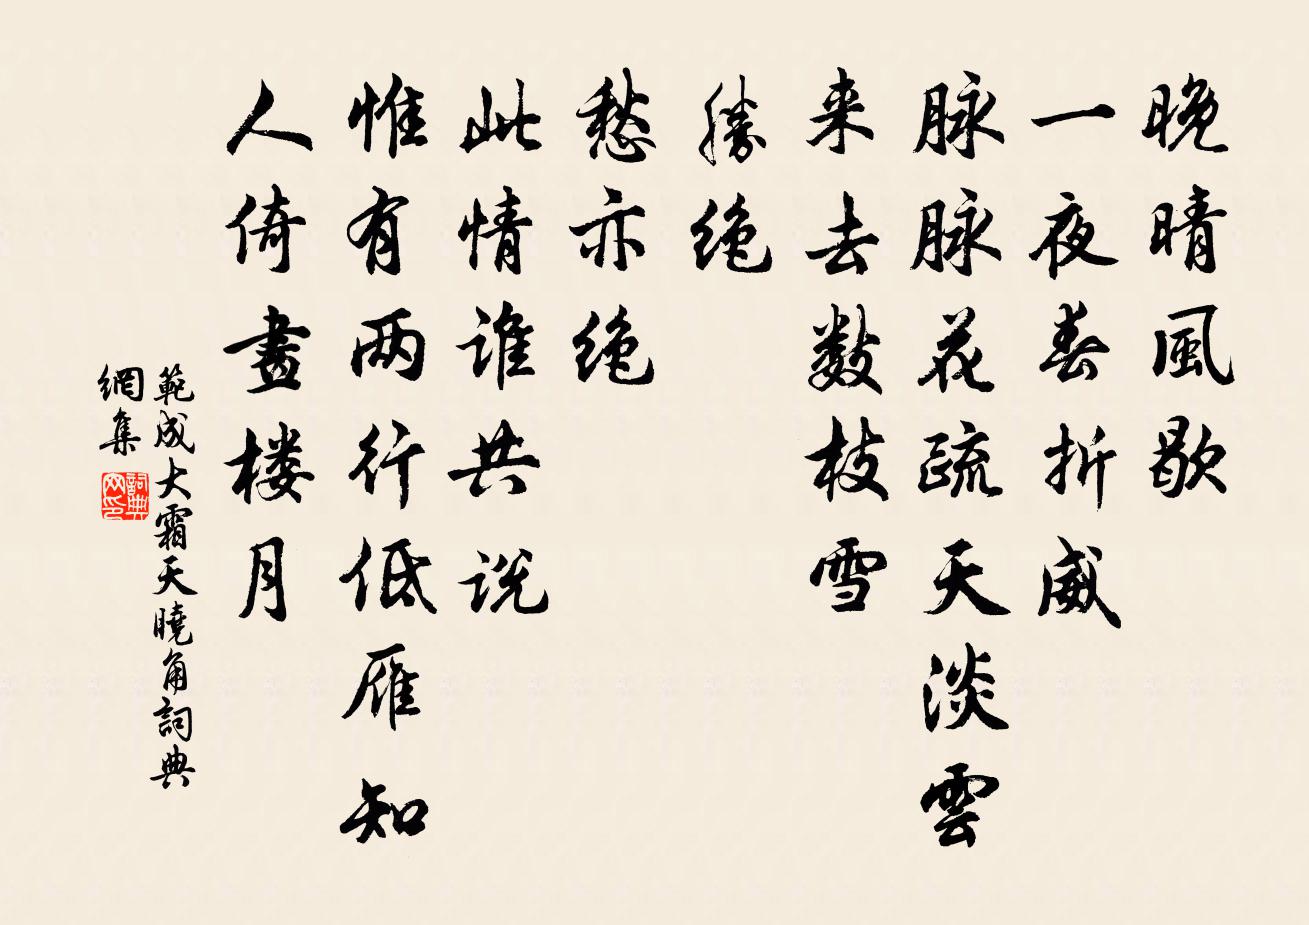 晚晴風歇
一夜春折威
脉脉花疏天淡雲
来去数枝雪
勝绝
愁亦绝
此情谁共说
惟有两行低雁知
人倚畫楼月
範成大霜天曉角詞典
網集
詞典
网印